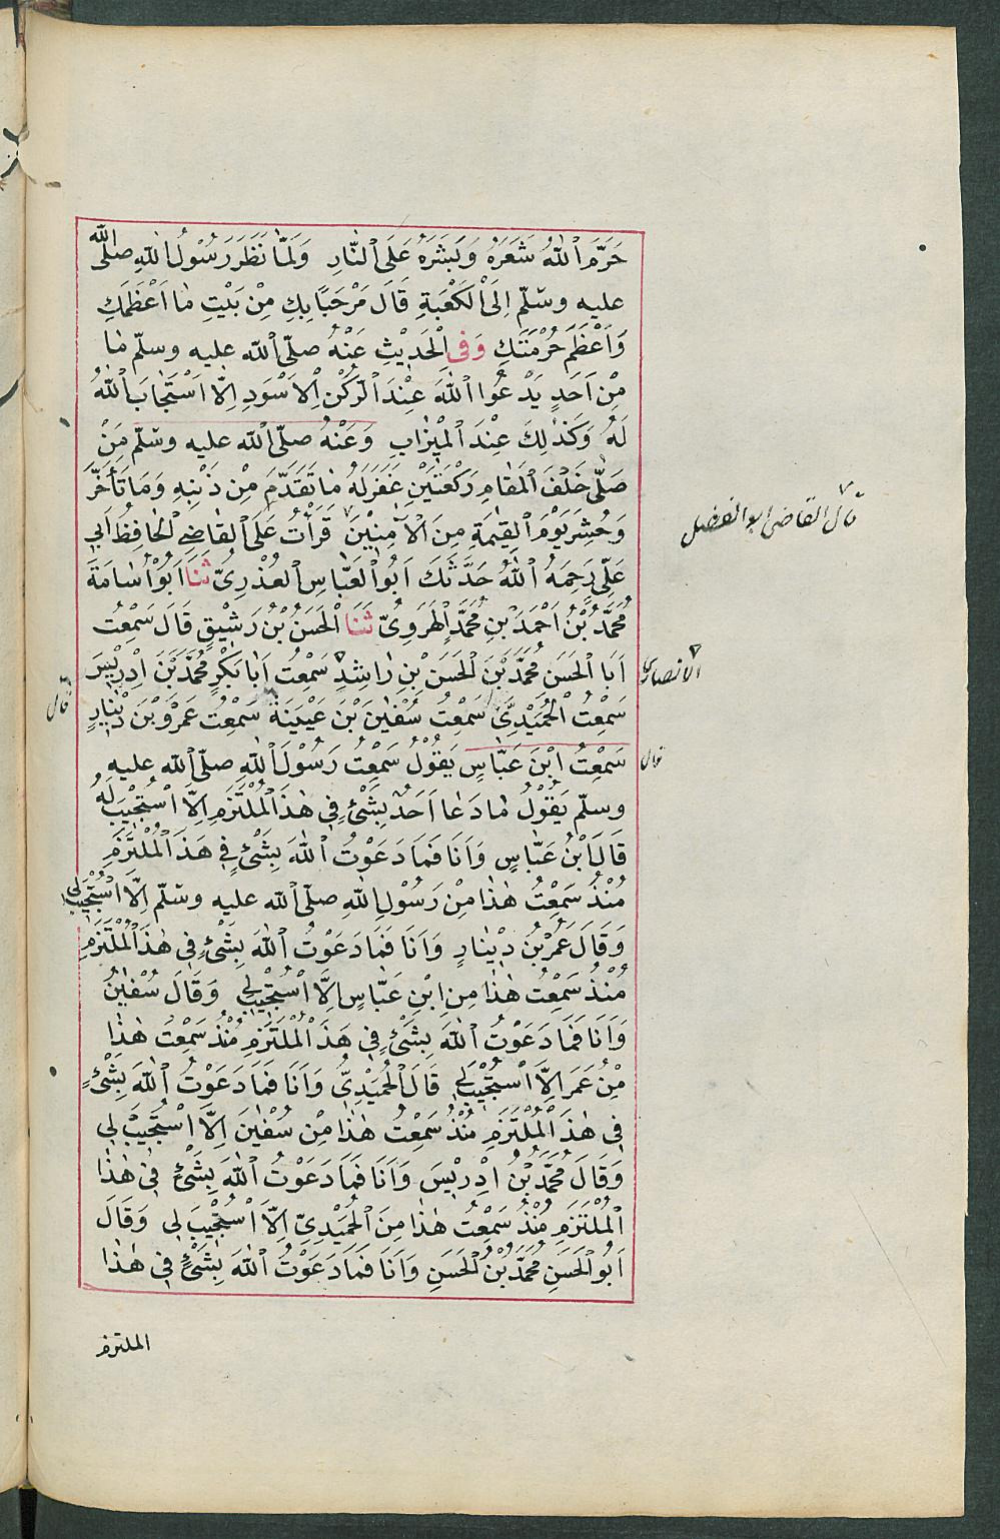 حَرَّمَ اللّٰهُ شَعَرَهُ وَبَشَرَهُ عَلَى النَّارِ وَلَمَّا نَظَرَ رَسُوْلُ اللّٰهِ صلّى الله
عليه وسلّم اِلَى الْكَعْبَةِ قَالَ مَرْحَبًا بِكِ مِنْ بَيْتٍ مَا اَعْظَمَكِ
وَاَعْظَمَ حُرْمَتَكِ وَفِى الْحَدِيْثِ عَنْهُ صلّى الله عليه وسلّم مَا
مِنْ اَحَدٍ يَدْعُوا اللّٰهَ عِنْدَ الرُّكْنِ الْاَسْوَدِ اِلَّا اسْتَجَابَ اللّٰهُ
لَهُ وَكَذٰلِكَ عِنْدَ الْمِيْزَابِ وَعَنْهُ صلّى الله عليه وسلّم مَنْ
صَلّٰى خَلْفَ الْمَقَامِ رَكْعَتَيْنِ غُفِرَ لَهُ مَا تَقَدَّمَ مِنْ ذَنْبِهِ وَمَا تَأَخَّرَ
وَحُشِرَ يَوْمَ الْقِيٰمَةِ مِنَ الْاٰمِنِيْنَ قَرَأْتُ عَلَى الْقَاضِى الْحَافِظِ اَبِى
قال القاضى ابو الفضل
عَلِىٍّ رَحِمَهُ اللّٰهُ حَدَّثَكَ اَبُو الْعَبَّاسِ الْعُذْرِىُّ ثَنَا اَبُوْ اُسَامَةَ
مُحَمَّدُ بْنُ اَحْمَدَ بْنِ مُحَمَّدٍ الْهَرَوِىُّ ثَنَا الْحَسَنُ بْنُ رَشِيْقٍ قَالَ سَمِعْتُ
اَبَا الْحَسَنِ مُحَمَّدَ بْنَ الْحَسَنِ بْنِ رَاشِدٍ سَمِعْتُ اَبَا بَكْرٍ مُحَمَّدَ بْنَ اِدْرِيْسَ
الانصارى
قال
سَمِعْتُ الْحُمَيْدِىَّ سَمِعْتُ سُفْيٰنَ بْنَ عُيَيْنَةَ سَمِعْتُ عَمْرَو بْنَ دِيْنَارٍ
سَمِعْتُ ابْنَ عَبَّاسٍ يَقُوْلُ سَمِعْتُ رَسُوْلَ اللّٰهِ صلّى الله عليه
قال
وسلّم يَقُوْلُ مَا دَعَا اَحَدٌ بِشَىْءٍ فِى هٰذَا الْمُلْتَزَمِ اِلَّا اسْتُجِيْبَ لَهُ
قَالَ ابْنُ عَبَّاسٍ وَاَنَا فَمَا دَعَوْتُ اللّٰهَ بِشَىْءٍ فِى هَذَا الْمُلْتَزَمِ
مُنْذُ سَمِعْتُ هٰذَا مِنْ رَسُوْلِ اللّٰهِ صلّى الله عليه وسلّم اِلَّا اسْتُجِيْبَ لِى
وَقَالَ عَمْرُ بْنُ دِيْنَارٍ وَاَنَا فَمَا دَعَوْتُ اللّٰهَ بِشَىْءٍ فِى هٰذَا الْمُلْتَزَمِ
مُنْذُ سَمِعْتُ هٰذَا مِنِ ابْنِ عَبَّاسٍ اِلَّا اسْتُجِيْبَ لِى وَقَالَ سُفْيٰنُ
وَاَنَا فَمَا دَعَوْتُ اللّٰهَ بِشَىْءٍ فِى هَذَا الْمُلْتَزَمِ مُنْذُ سَمِعْتُ هٰذَا
مِنْ عَمْرٍ اِلَّا اسْتُجِيْبَ لِى قَالَ الْحُمَيْدِىُّ وَاَنَا فَمَا دَعَوْتُ اللّٰهَ بِشَىْءٍ
فِى هٰذَا الْمُلْتَزَمِ مُنْذُ سَمِعْتُ هٰذَا مِنْ سُفْيٰنَ اِلَّا اسْتُجِيْبَ لِى
وَقَالَ مُحَمَّدُ بْنُ اِدْرِيْسَ وَاَنَا فَمَا دَعَوْتُ اللّٰهَ بِشَىْءٍ فِى هٰذَا
الْمُلْتَزَمِ مُنْذُ سَمِعْتُ هٰذَا مِنَ الْحُمَيْدِىِّ اِلَّا اسْتُجِيْبَ لِى وَقَالَ
اَبُو الْحَسَنِ مُحَمَّدُ بْنُ الْحَسَنِ وَاَنَا فَمَا دَعَوْتُ اللّٰهَ بِشَىْءٍ فِى هٰذَا
الملتزم